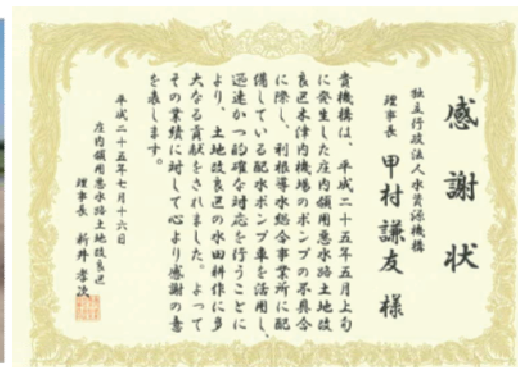 感謝状
独立行政法人水資源機構
理事長 甲村謙友 様
貴機構は、平成二十五年五月上旬
に発生した庄内領用悪水路土地改
良区木津内機場のポンプの不具合
に際し、利根導水総合事業所に配
備している配水ポンプ車を活用し、
迅速かつ的確な対応を行うことに
より、土地改良区の水田耕作に多
大なる貢献をされました。よって
その業績に対して心より感謝の意
を表します。
平成二十五年七月十六日
庄内領用悪水路土地改良区
理事長 新井